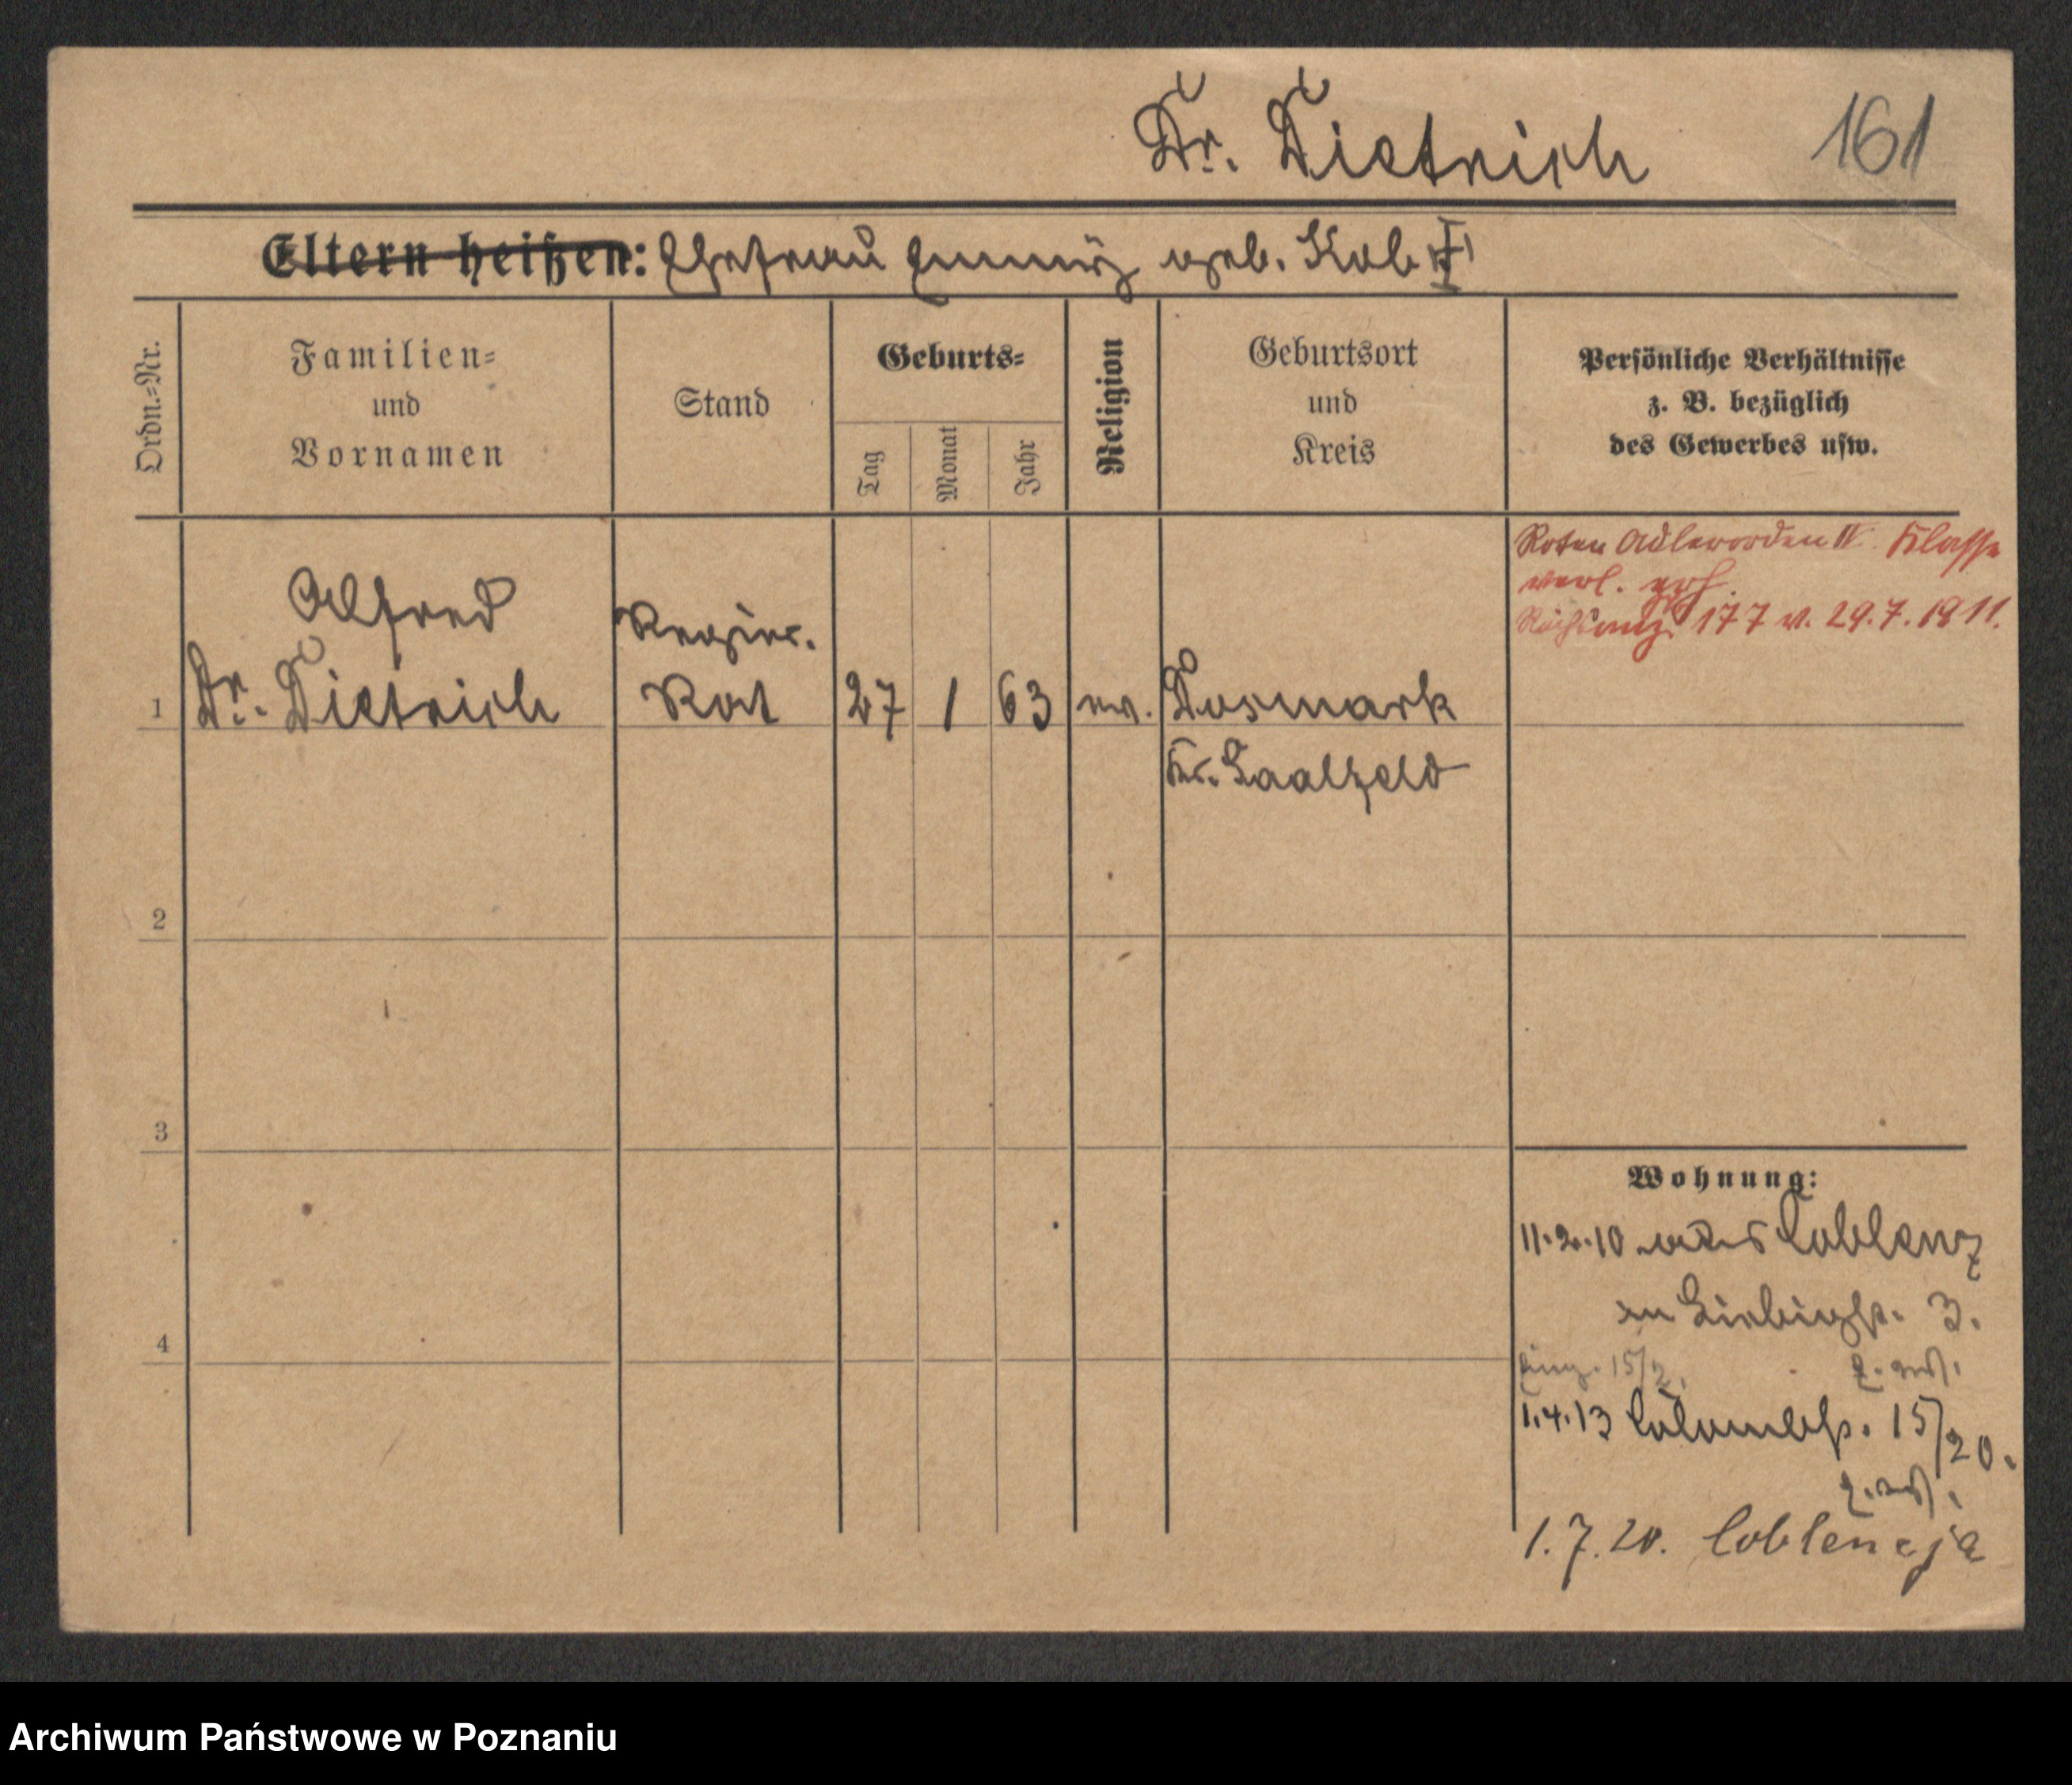 Dr. Dietrich 161
Eltern heißen: Ehefrau geb.
Ordn.=Nr.
Familien=
und
Vornamen
Stand
Geburts=
Tag
Monat
Jahr
Religion
Geburtsort
und
Kreis
Persönliche Verhältnisse
z. B. bezüglich
des Gewerbes usw.
Roten Adlerorden IV. Klasse
verl.
Reichsanz. 177 v. 29.7.1911.
Alfred
1 Dr. Dietrich
Regier.
Rat
27 1 63 ev. Dosmark
Kr. Saalfeld
2
3
4
Wohnung:
11.2.10 aus Coblenz
in Liebigstr. 3.
15/2.
1.4.13 Colombstr. 15/20.
1.7.20. Coblencja
Archiwum Państwowe w Poznaniu